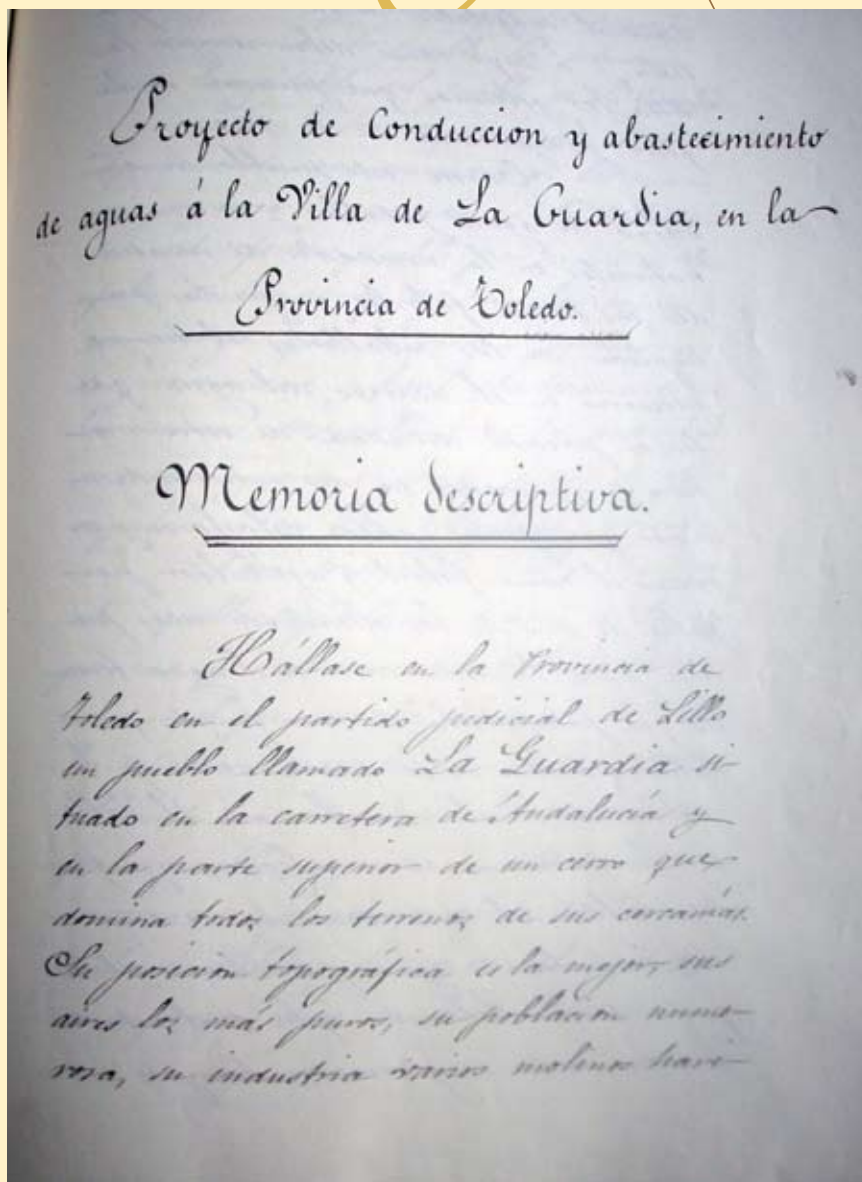 Proyecto de Conduccion y abastecimiento
de aguas á la Villa de La Guardia, en la
Provincia de Toledo.
Memoria descriptiva.
Hállase en la Provincia de
Toledo en el partido judicial de Lillo
un pueblo llamado La Guardia si-
tuado en la carretera de Andalucía y
en la parte superior de un cerro que
domina todos los terrenos de sus cercanías.
Su posicion topográfica es la mejor, sus
aires los más puros, su poblacion nume-
rosa, su industria varios molinos hari-